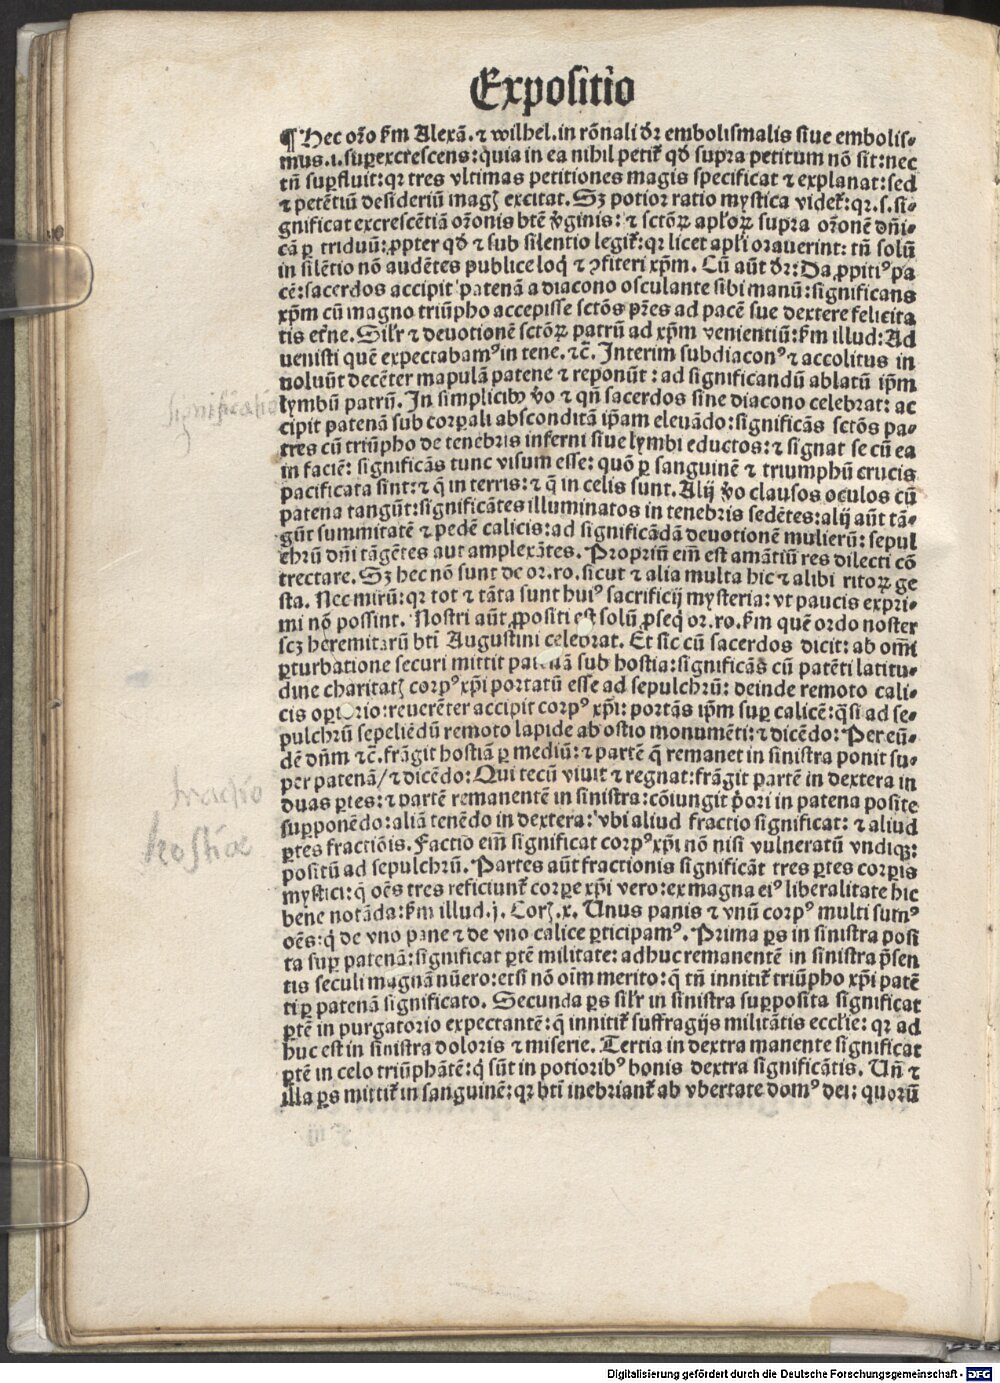 Expositio
¶ Hec or̃o ẜm Alexã. ⁊ wilhel. in rõnali dr̃ embolismalis siue embolis⸗
mus .i. suꝑexcrescens: quia in ea nihil petit᷑ qđ supra petitum nõ sit: nec
tñ suꝑfluit: qꝛ tres vltimas petitiones magis specificat ⁊ explanat: sed
⁊ petẽtiũ desideriũ magꝭ excitat. Sꝫ potior ratio mystica videt᷑: qꝛ .s. si⸗
gnificat excrescẽtiã or̃onis btẽ ỽginis: ⁊ sctõꝝ apl̃oꝝ supra or̃onẽ dñi⸗
cã ꝑ triduũ: ꝓpter qđ ⁊ sub silentio legit᷑: qꝛ licet apl̃i orauerint: tñ solũ
in silẽtio nõ audẽtes publice loqͥ ⁊ ꝯfiteri xp̃m. Cũ aũt dr̃: Da ꝓpitiꝰ pa
cẽ: sacerdos accipit patenã a diacono osculante sibi manũ: significans
xp̃m cũ magno triũpho accepisse sctõs pr̃es ad pacẽ sue dextere felicita
tis et̃ne. Sil̃r ⁊ deuotionẽ sctõꝝ patrũ ad xp̃m venientiũ: ẜm illud: Ad
uenisti quẽ expectabamꝰ in tene. ⁊c̃. Interim subdiaconꝰ ⁊ accolitus in
uoluũt decẽter mapulã patene ⁊ reponũt: ad significandũ ablatũ ip̃m
lymbũ patrũ. In simplicibꝰ ỽo ⁊ qñ sacerdos sine diacono celebrat: ac
cipit patenã sub corꝑali absconditã ip̃am eleuãdo: significãs sctõs pa⸗
tres cũ triũpho de tenebris inferni siue lymbi eductos: ⁊ signat se cũ ea
in faciẽ: significãs tunc visum esse: quõ ꝑ sanguinẽ ⁊ triumphũ crucis
pacificata sint: ⁊ q̃ in terris: ⁊ q̃ in celis sunt. Alij ỽo clausos oculos cũ
patena tangũt: significãtes illuminatos in tenebris sedẽtes: alij aũt tã⸗
gũt summitatẽ ⁊ pedẽ calicis: ad significãdã deuotionẽ mulierũ: sepul
chrũ dñi tãgẽtes aut amplexãtes. Propriũ eĩm est amãtiũ res dilecti cõ
trectare. Sꝫ hec nõ sunt de or. ro. sicut ⁊ alia multa hic ⁊ alibi ritoꝝ ge
sta. Nec mirũ: qꝛ tot ⁊ tãta sunt huiꝰ sacrificij mysteria: vt paucis expri⸗
mi nõ possint. Nostri aũt ꝓpositi est solũ ꝓseqͥ or. ro. ẜm quẽ ordo noster
scꝫ heremitarũ btĩ Augustini celebrat. Et sic cũ sacerdos dicit: ab om̃i
ꝑturbatione securi mittit patenã sub hostia: significãs cũ patẽti latitu⸗
dine charitatꝭ corpꝰ xp̃i portatũ esse ad sepulchrũ: deinde remoto cali⸗
cis optorio: reuerẽter accipit corpꝰ xp̃i: portãs ip̃m suꝑ calicẽ: q̃si ad se⸗
pulchrũ sepeliẽdũ remoto lapide ab ostio monumẽti: ⁊ dicẽdo: Per eũ⸗
dẽ dñm ⁊c̃. frãgit hostiã ꝑ mediũ: ⁊ partẽ q̃ remanet in sinistra ponit su⸗
per patenã/ ⁊ dicẽdo: Qui tecũ viuit ⁊ regnat: frãgit partẽ in dextera in
duas ꝑtes: ⁊ partẽ remanentẽ in sinistra: cõiungit p̃ori in patena posite
supponẽdo: aliã tenẽdo in dextera: vbi aliud fractio significat: ⁊ aliud
ꝑtes fractiõis. Factio eĩm significat corpꝰ xp̃i nõ nisi vulneratũ vndiqꝫ:
positũ ad sepulchrũ. Partes aũt fractionis significãt tres ꝑtes corꝑis
mystici: q̃ oẽs tres reficiunt᷑ corꝑe xp̃i vero: ex magna eiꝰ liberalitate hic
bene notãda: ẜm illud .j. Corꝭ .x. Unus panis ⁊ vnũ corpꝰ multi sumꝰ
oẽs: qͥ de vno pane ⁊ de vno calice ꝑticipamꝰ. Prima ꝑs in sinistra posi
ta suꝑ patenã: significat ꝑtẽ militãtẽ: adhuc remanentẽ in sinistra p̃sen
tis seculi magnã nũero: etsi nõ oĩm merito: q̃ tñ innitit᷑ triũpho xp̃i patẽ
ti ꝑ patenã significato. Secunda ꝑs sil̃r in sinistra supposita significat
ꝑtẽ in purgatorio expectantẽ: q̃ innitit᷑ suffragijs militãtis eccl̃ie: qꝛ ad
huc est in sinistra doloris ⁊ miserie. Tertia in dextra manente significat
ꝑtẽ in celo triũphãtẽ: qͥ sũt in potioribꝰ bonis dextra significãtis. Uñ ⁊
illa ꝑs mittit᷑ in sanguinẽ: qꝛ btĩ inebriant᷑ ab vbertate domꝰ dei: quorũ
significatio
fractio
hostiae
Digitalisierung gefördert durch die Deutsche Forschungsgemeinschaft - DFG